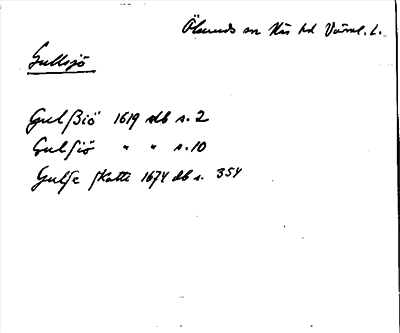 Ölseruds sn Näs hd Värml. L.
Gullsjö
Gulßiö 1619 db s. 2
Gulsiö " " s. 10
Gulse skatte 1674 db s. 354